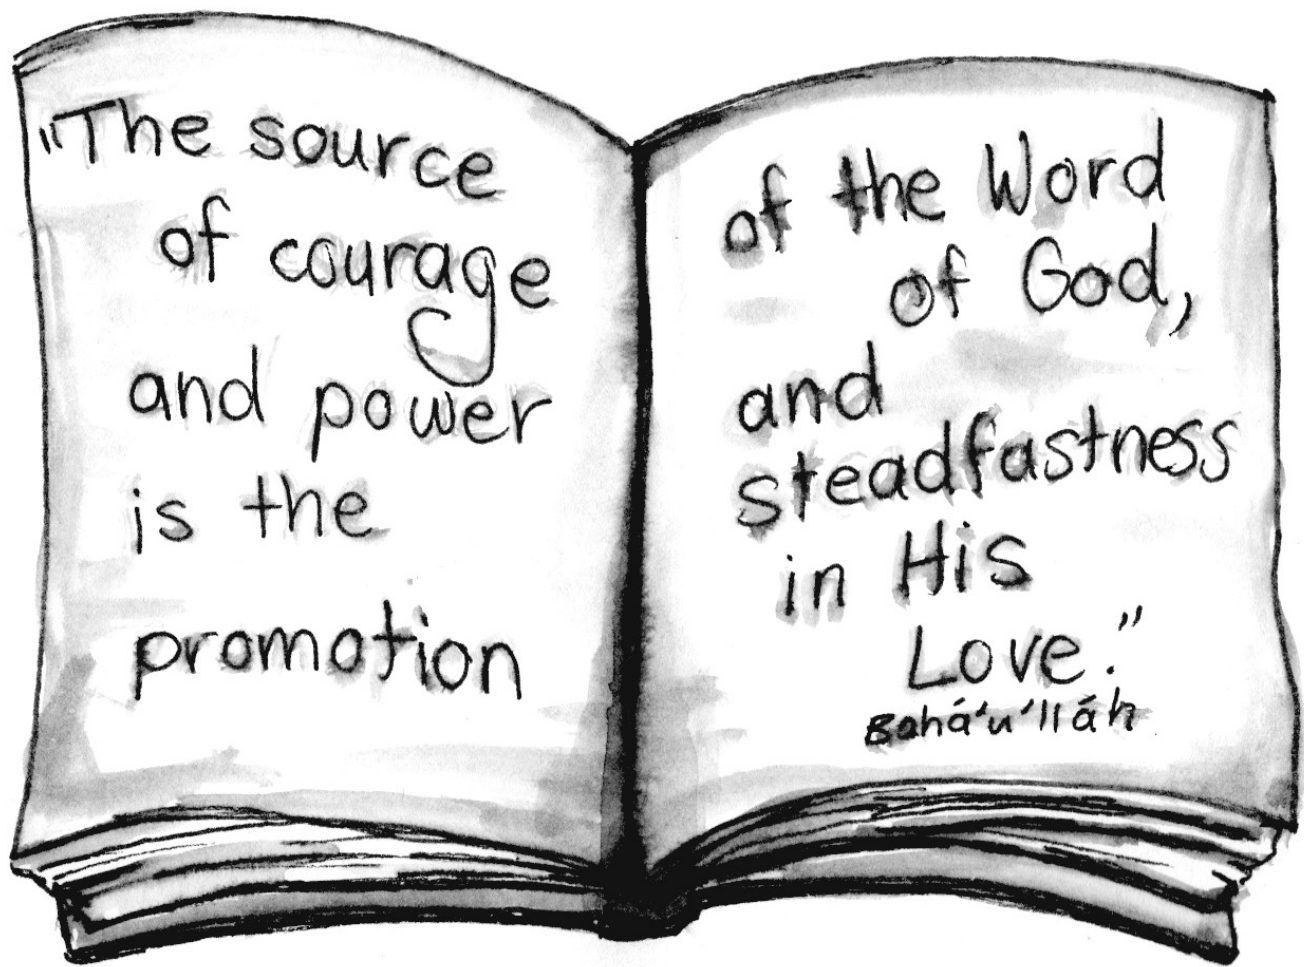 "The source
of courage
and power
is the
promotion
of the Word
of God,
and
steadfastness
in His
Love."
Bahá'u'lláh